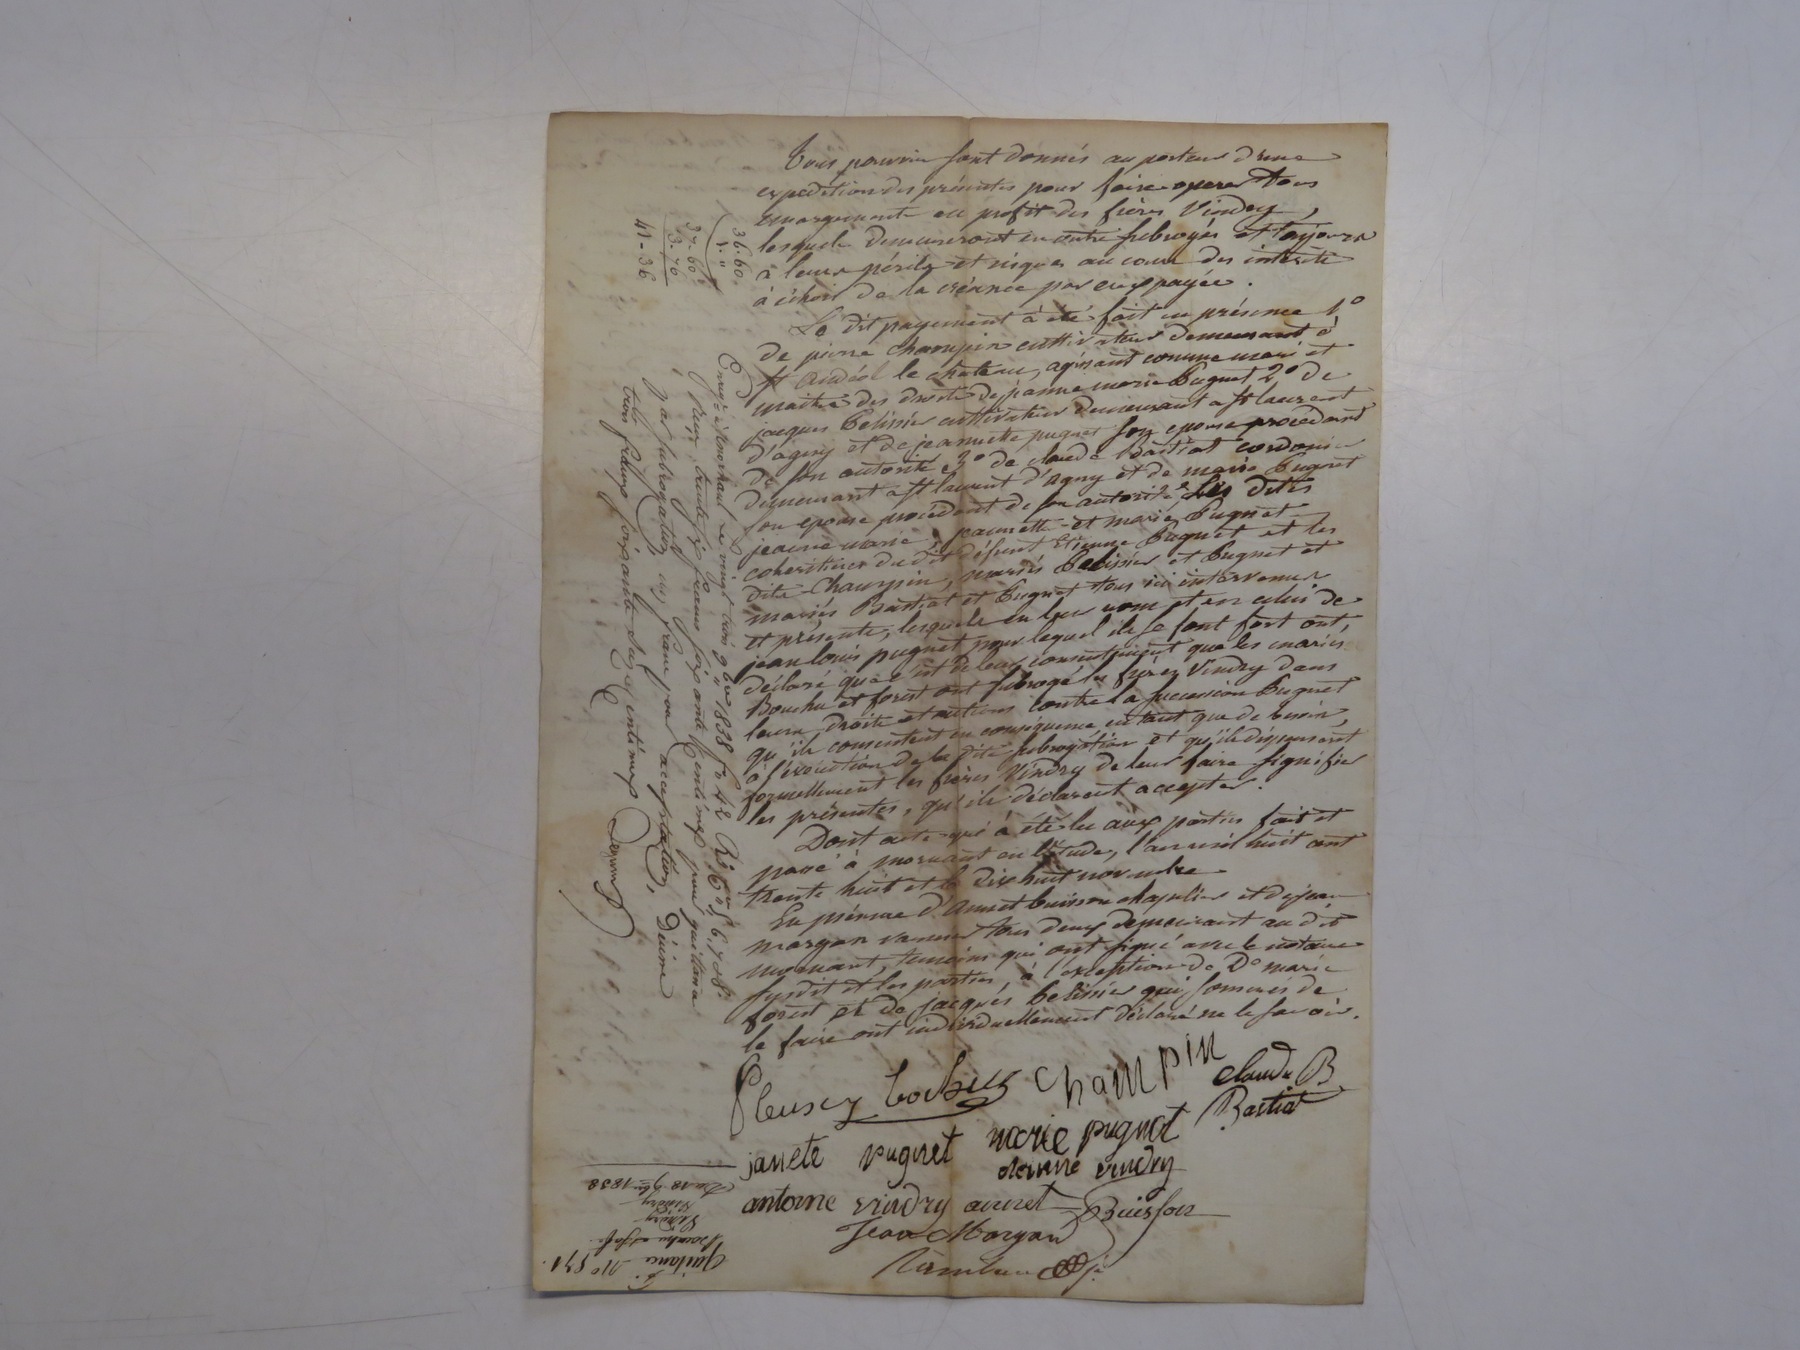 Tous pouvoirs sont donnés au porteur d'une
expedition des présentes pour faire operer tous
emargements au profit des frères Vindry,
lesquels demeureront en outre subrogés et toujours
à leurs périls et risques au cours des intérêts
à échoir de la créance par eux payée.
Le dit payement à été fait en présence 1°
de pierre Champin cultivateur demeurant à
St andéol le chateau, agissant comme mari et
maitre des droits de jeanne marie Pugnet 2° de
jacques Pelissier cultivateur demeurant a St laurent
d'agny et de jeannette pugnet son epouse procédant
de son autorité 3° de claude Bastiat cordonier
demeurant a St laurent d'agny et de marie Pugnet
son epouse procédant de son autorité, Les dites
jeanne marie, jeannette et marie Pugnet
coheritieres du dit défunt Etienne Pugnet et les
dits Champin, mariés Pelissier et Pugnet et
mariés Bastiat et Pugnet tous ici intervenus
et présents, lesquels en leur nom et en celui de
jean louis pugnet pour lequel ils se font fort ont,
déclaré que c'est de leur consentement que les mariés
Bouchu et forest ont subrogé les frères Vindry dans
leurs droits et actions contre la succession Pugnet
qu'ils consentent en conséquence en tant que de besoin,
à l'exécution de la dite subrogation et qu'ils dispensent
formellement les frères Vindry de leur faire signifier
les présentes, qu'ils déclarent accepter.
Dont acte qui à été lu aux parties fait et
passé à mornant en l'étude, l'an mil huit cent
trente huit et le dix huit novembre
En présence d'annet buisson chapelier et de jean
morgan tous deux demeurant au dit
mornant, temoins qui ont signé avec le notaire
susdit et les parties à l'exception de De marie
forest et de jacques Pelissier qui sommés de
le faire ont individuellement déclaré ne le savoir.
Champin
claude B
Bastiat
janete pugnet marie pugnet
etienne vindry
antoine vindry annet Buisson
Jean Morgan
36.60.
37.60
3.76
41-36
Enregé à mornant le vingt trois 9bre 1838 fo 42
Reçu trente six francs soixante centimes pour quittance
par subrogation un franc pour acceptation, Décime
trois francs soixante seize centimes
Quittance No 571.
Bouchu
Vindry
Du 18 9bre 1838